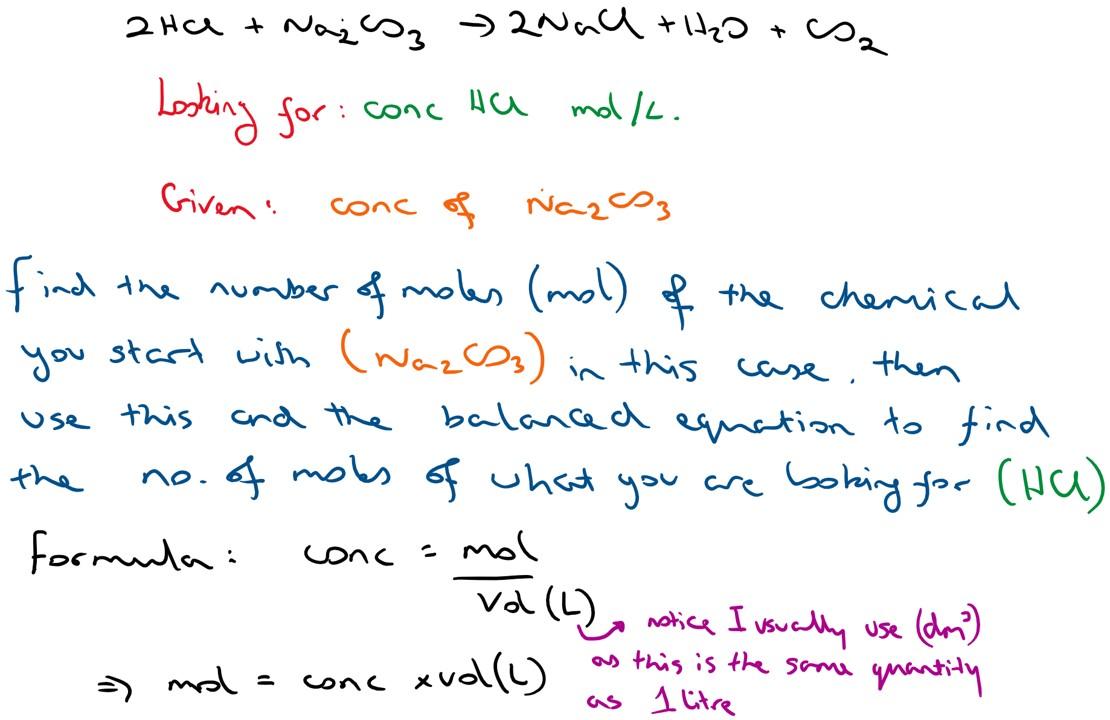 2HCl + Na₂CO₃ → 2NaCl + H₂O + CO₂
Looking for: conc HCl mol/L.
Given: conc of Na₂CO₃
Find the number of moles (mol) of the chemical
you start with (Na₂CO₃) in this case, then
use this and the balanced equation to find
the no. of moles of what you are looking for (HCl)
Formula: conc = mol
Vol (L)
→ notice I usually use (dm³)
as this is the same quantity
as 1 litre
⇒ mol = conc × vol(L)